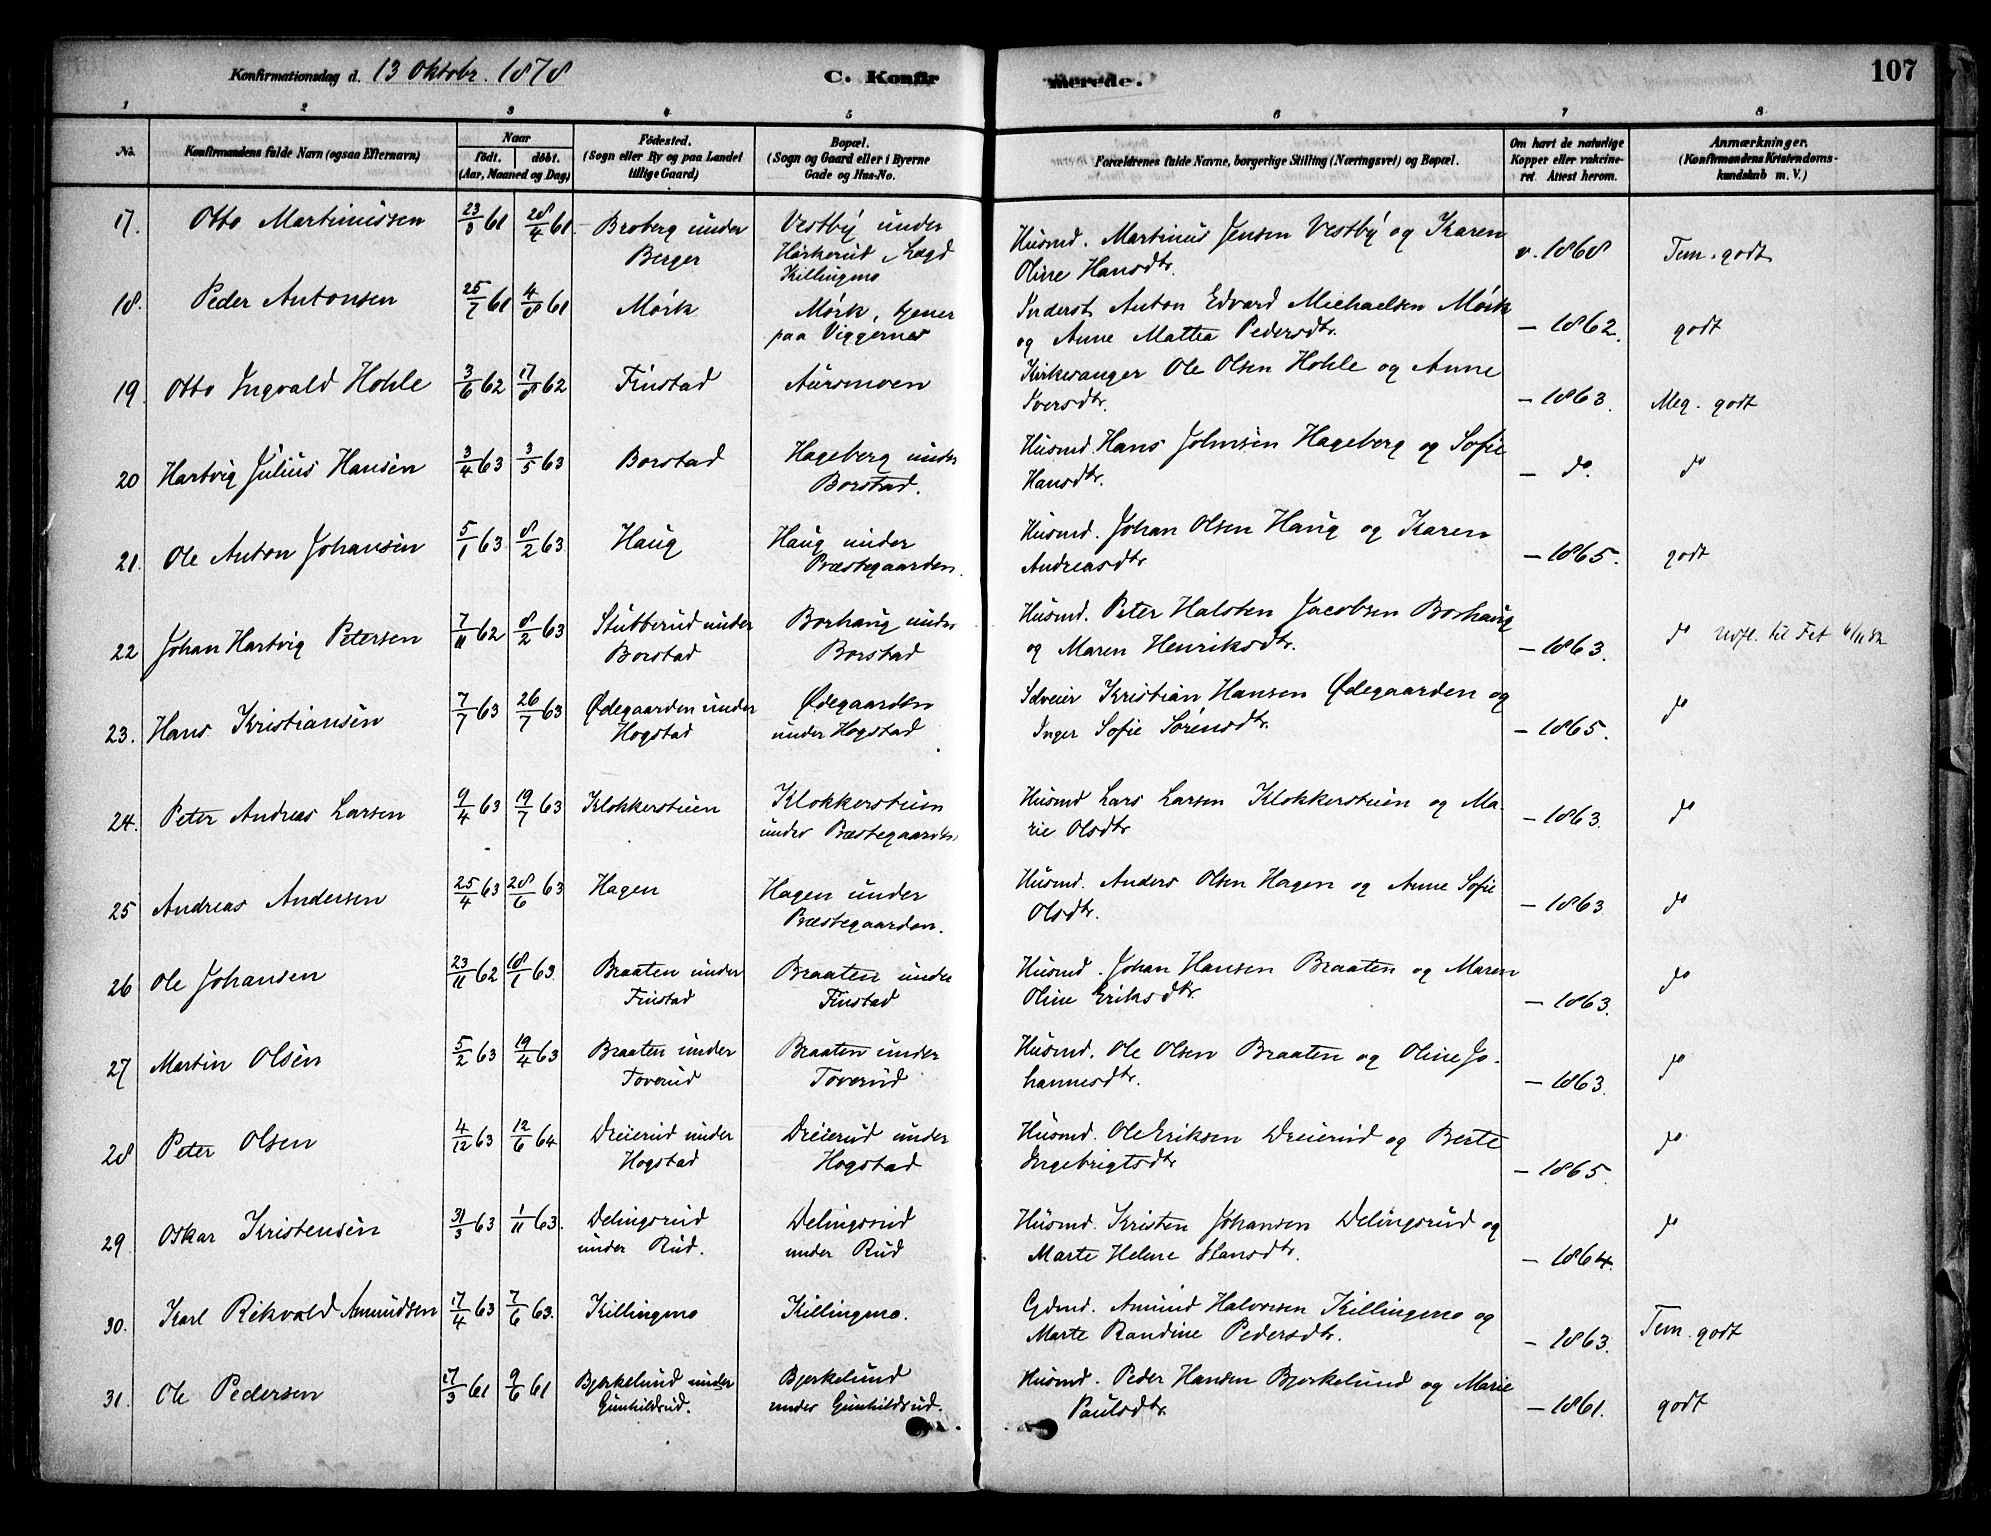 Konfirmationsdag d. 13 Oktobr. 1878
C. Konfirmerede.
107
1 2 3 4 5 6 7 8
No. Konfirmandens fulde Navn (ogsaa Efternavn) Naar født. døbt. (Aar, Maaned og Dag) Fødested. (Sogn eller By og paa Landet tillige Gaard) Bopæl. (Sogn og Gaard eller i Byerne Gade og Hus-No. Forældrenes fulde Navne, borgerlige Stilling (Næringsvei) og Bopæl. Om havt de naturlige Kopper eller vakcineret. Attest herom. Anmærkninger. (Konfirmandens Kristendomskundskab m. V.)
17. Otto Martinussen 23/3 61 28/4 61. Broberg under Berger Vestby under Harkerud Lægd Killingmo Husmd. Martinus Jensen Vestby og Karen Oline Hansdtr. v. 1868 Tem. godt
18. Peder Antonsen 25/7 61 4/8 61 Mørk Mørk, tjener paa Viggernes Inderst Anton Edvard Michaelsen Mørk og Anne Mattea Pedersdtr. – 1862. godt
19. Otto Ingvald Hohle 3/6 62 17/8 62 Finstad Aursmoen Kirkesanger Ole Olsen Hohle og Anne Iversdtr. – 1863. Meg. godt
20 Hartvig Julius Hansen 3/4 63 3/5 63 Borstad Hageberg under Borstad. Husmd. Hans Johnsen Hageberg og Sofie Hansdtr. – do. do
21. Ole Anton Johansen 5/1 63 8/2 63 Haug Haug under Præstegaarden. Husmd. Johan Olsen Haug og Karen Andreasdtr – 1865. godt
22 Johan Hartvig Petersen 7/11 62 8/2 63 Stubberud under Borstad Borhaug under Borstad Husmd. Peter Halsten Jacobsen Borhaug og Maren Henriksdtr. – 1863. do Udfl. til Fet 6/11 82
23. Hans Kristiansen 7/7 63 26/7 63 Ødegaarden under Hogstad Ødegaarden under Hogstad Selveier Kristian Hansen Ødegaarden og Inger Sofie Sørensdtr. – 1865. do
24. Peter Andreas Larsen 9/4 63 19/7 63 Klokkerstuen Klokkerstuen under Præstegaarden Husmd Lars Larsen Klokkerstuen og Marie Olsdtr – 1863. do
25 Andreas Andersen 25/4 63 28/6 63 Hagen Hagen under Præstegaarden. Husmd. Anders Olsen Hagen og Anne Sofie Olsdtr. – 1863 do
26 Ole Johansen 23/11 62 18/1 63 Braaten under Finstad Braaten under Finstad Husmd. Johan Hansen Braaten og Maren Oline Eriksdtr. – 1863. do
27 Martin Olsen 5/2 63 19/4 63 Braaten under Toverud Braaten under Toverud Husmd. Ole Olsen Braaten og Oline Johannesdtr. – 1863. do
28 Peter Olsen 4/12 63 12/6 64 Dreierud under Hogstad Dreierud under Hogstad Husmd. Ole Eriksen Dreierud og Berte Ingebrigtsdtr – 1865. do
29 Oskar Kristensen 31/3 63 1/11 63. Delingsrud under Rud. Delingsrud under Rud Husmd. Kristen Johansen Delingsrud og Marte Helene Hansdtr. – 1864. do
30. Karl Rikvald Amundsen 17/4 63 7/6 63. Killingmo Killingmo. Gdmd. Amund Halvorsen Killingmo og Marte Randine Pedersdtr. – 1863. Tem. godt
31. Ole Pedersen 17/3 61 9/6 61 Bjerkelund under Gunhildsrud. Bjerkelund under Gunhildsrud. Husmd. Peder Hansen Bjerkelund og Marie Paulsdtr. – 1861. godt